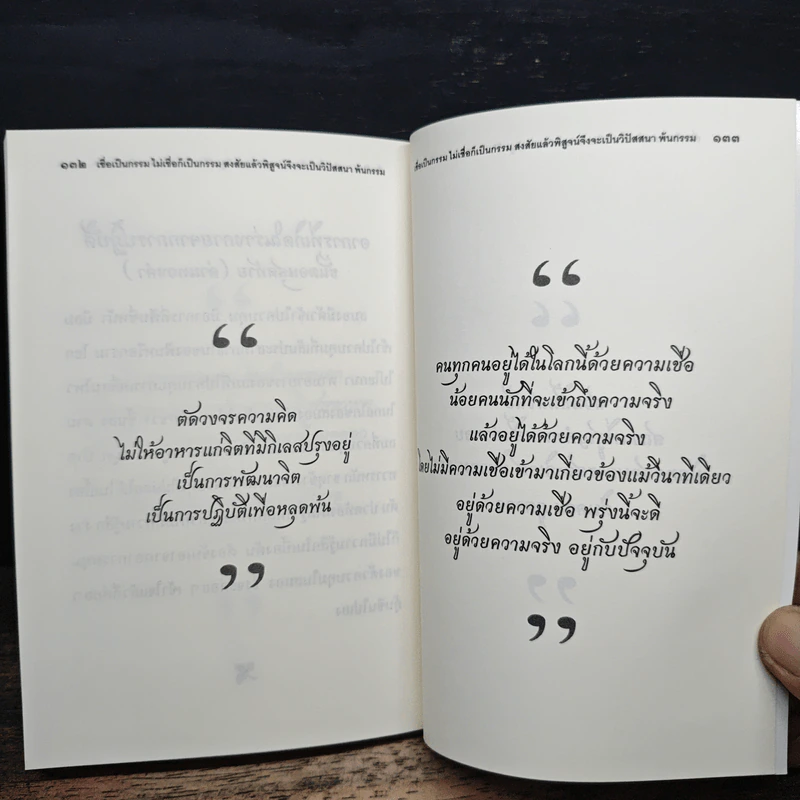 ๑๓๒ เชื่อเป็นกรรม ไม่เชื่อก็เป็นกรรม สงสัยแล้วพิสูจน์จึงจะเป็นวิปัสสนา พ้นกรรม
“
ตัดวงจรความคิด
ไม่ให้อาหารแก่จิตที่มีกิเลสปรุงอยู่
เป็นการพัฒนาจิต
เป็นการปฏิบัติเพื่อหลุดพ้น
”
เชื่อเป็นกรรม ไม่เชื่อก็เป็นกรรม สงสัยแล้วพิสูจน์จึงจะเป็นวิปัสสนา พ้นกรรม ๑๓๓
“
คนทุกคนอยู่ได้ในโลกนี้ด้วยความเชื่อ
น้อยคนนักที่จะเข้าถึงความจริง
แล้วอยู่ได้ด้วยความจริง
โดยไม่มีความเชื่อเข้ามาเกี่ยวข้องแม้วินาทีเดียว
อยู่ด้วยความเชื่อ พรุ่งนี้จะดี
อยู่ด้วยความจริง อยู่กับปัจจุบัน
”